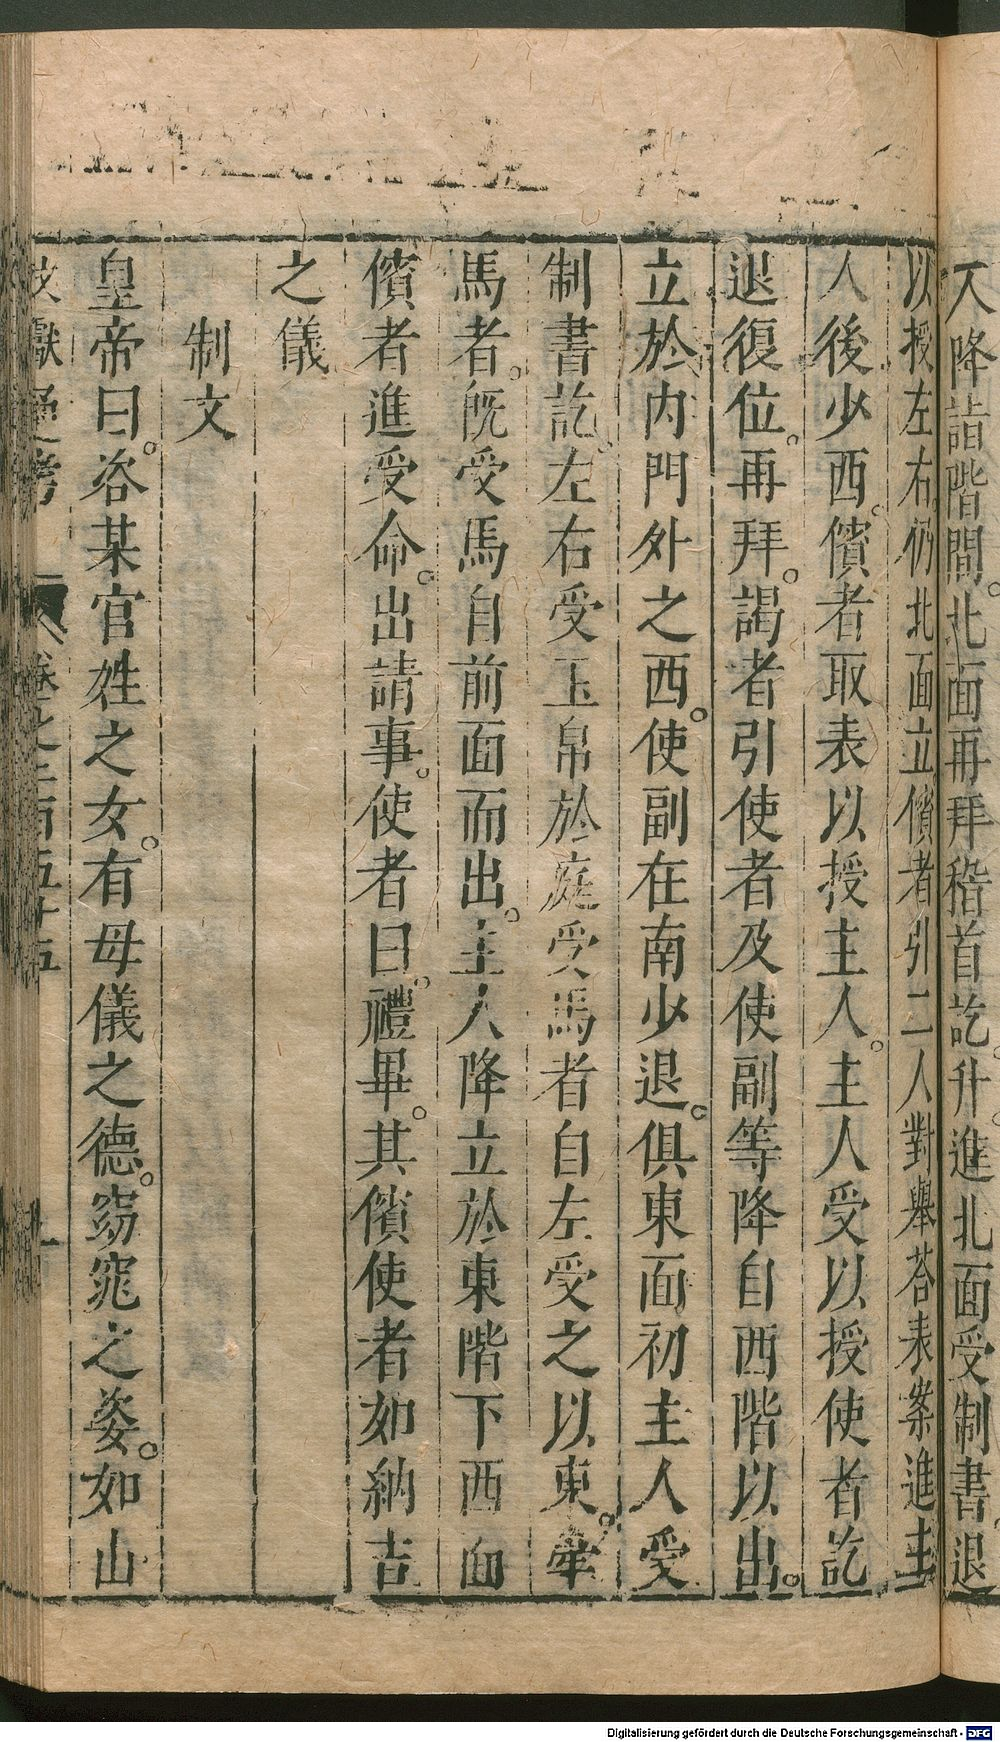 人降詣階間。北面再拜稽首訖。升。進北面受制書。退
以授左右。仍北面立儐者引二人對舉荅表案進主
人後少西。儐者取表以授主人。主人受以授使者訖
退復位。再拜。謁者引使者及使副等降自西階以出。
立於內門外之西。使副在南少退。俱東面初主人受
制書訖。左右受玉帛於庭受馬者自左受之以東。牽
馬者。旣受馬自前面而出。主人降立於東階下西面
儐者進受命。出請事。使者曰。禮畢。其儐使者如納吉
之儀
制文
皇帝曰。咨某官姓之女。有母儀之德。窈窕之姿。如山
文獻通考 卷之二百五十五
Digitalisierung gefördert durch die Deutsche Forschungsgemeinschaft - DFG